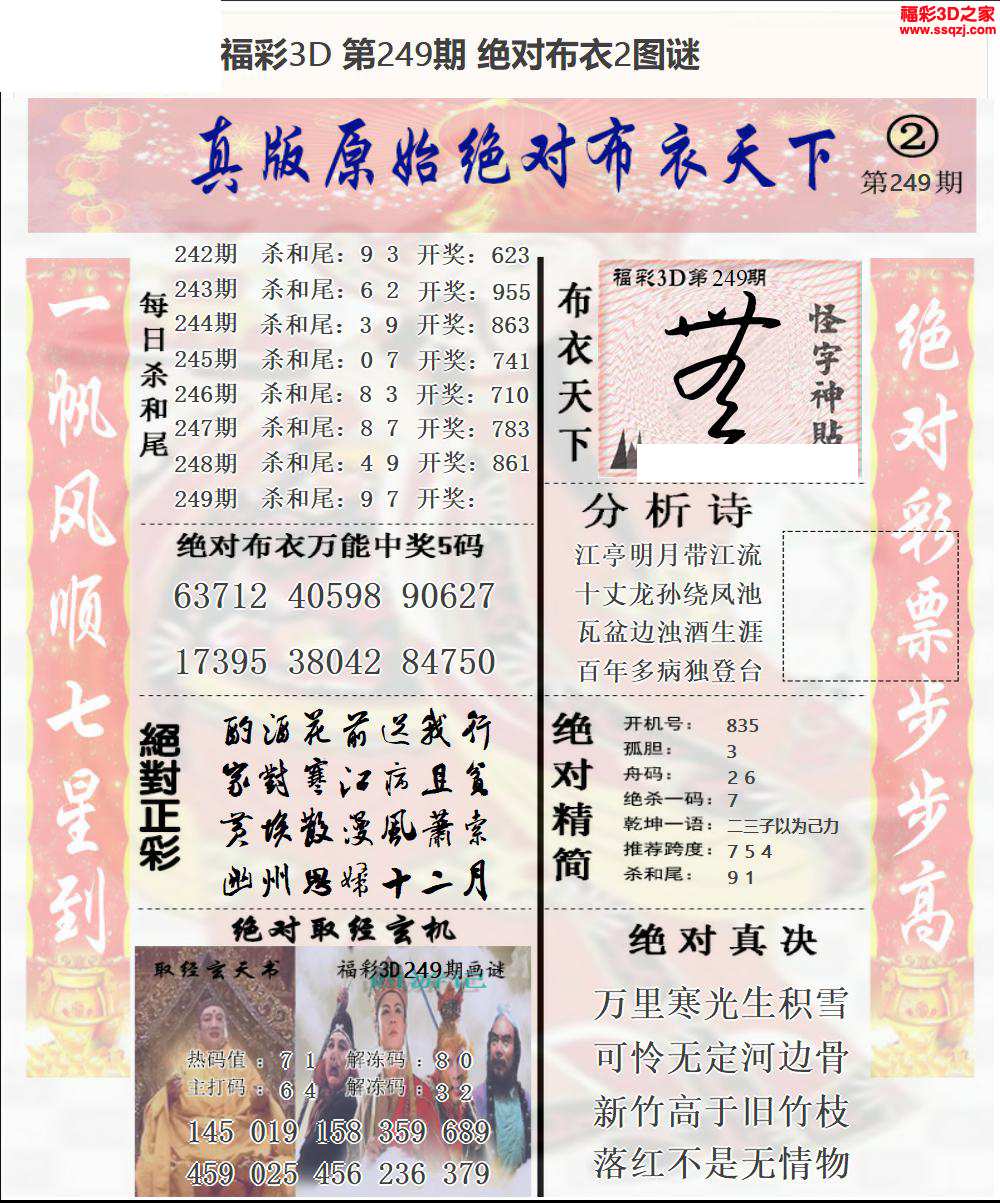 福彩3D之家
www.ssqzj.com
福彩3D 第249期 绝对布衣2图谜
真版原始绝对布衣天下
②
第249期
一帆风顺七星到
每日杀和尾
242期 杀和尾：9 3 开奖：623
243期 杀和尾：6 2 开奖：955
244期 杀和尾：3 9 开奖：863
245期 杀和尾：0 7 开奖：741
246期 杀和尾：8 3 开奖：710
247期 杀和尾：8 7 开奖：783
248期 杀和尾：4 9 开奖：861
249期 杀和尾：9 7 开奖：
绝对布衣万能中奖5码
63712 40598 90627
17395 38042 84750
絕對正彩
酌酒花前送我行
家對寒江病且貧
黃埃散漫風蕭索
幽州思婦十二月
绝对取经玄机
取经玄天书
福彩3D249期画谜
热码值：7 1 解冻码：8 0
主打码：6 4 解冻码：3 2
145 019 158 359 689
459 025 456 236 379
布衣天下
福彩3D第249期
怪字神貼
分析诗
江亭明月带江流
十丈龙孙绕凤池
瓦盆边浊酒生涯
百年多病独登台
绝对精简
开机号：835
孤胆：3
舟码：2 6
绝杀一码：7
乾坤一语：二三子以为己力
推荐跨度：7 5 4
杀和尾：9 1
绝对真决
万里寒光生积雪
可怜无定河边骨
新竹高于旧竹枝
落红不是无情物
绝对彩票步步高